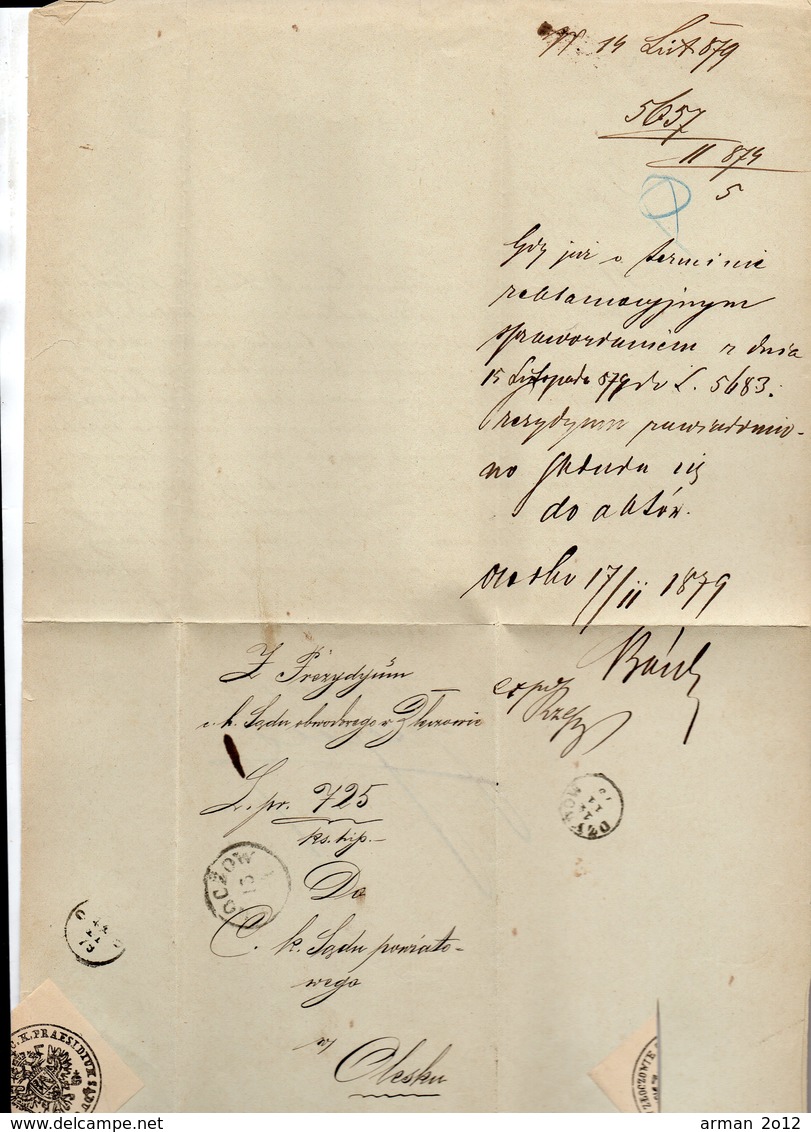 14 List 879
5657
11 879
5
Gdy już o terminie
reklamacyjnym
sprawozdaniem z dnia
15 Listopada 879 do L. 5683.
Prezydyum zawiadomio-
no składa się
do aktów.
Olesko 17/11 1879
Z Prezydyum
c. k. Sądu obwodowego w Złoczowie
L. pr. 725
ks. hip.
Do
C. k. Sądu powiato-
wego
w
Olesku
OCZOW
13
OŻYDOW
14
11
79
C. K. PRAESIDIUM SĄDU
ZŁOCZOWIE
arman 2012